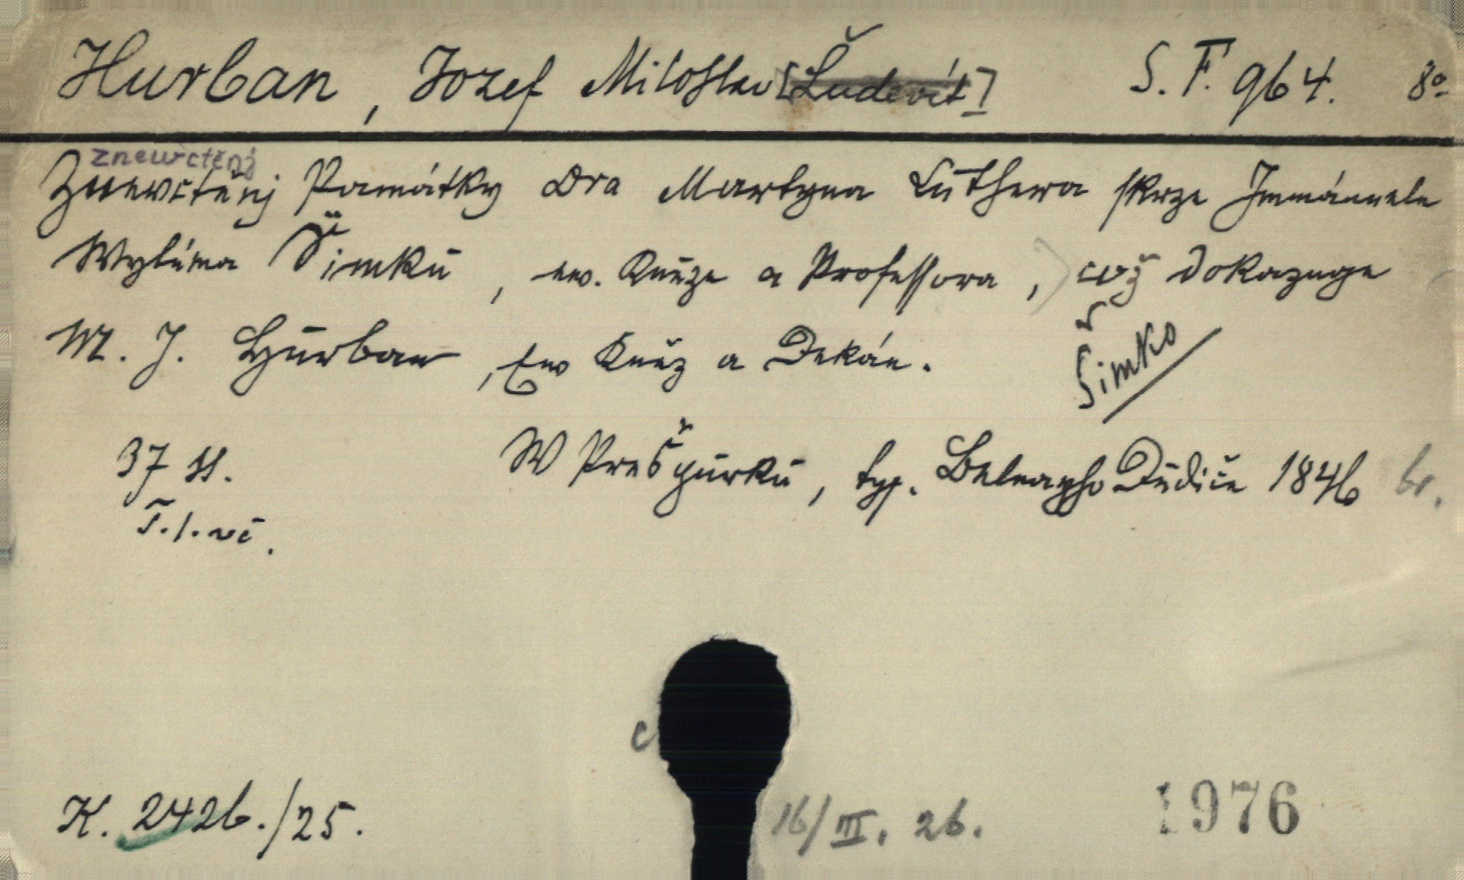 Hurban, Jozef Miloslav [Ľudevít] S. F. 964. 8º
zneurctěnj
Zneuctěnj Památky Dra Martyna Luthera skrze Immánuele
Wyléma Šimku, ew. Kněze a Professora, což dokazuge
M. J. Hurban, Ew Kněz a Dekán.
Šimko
37 ss. W Prešpurku, typ. Belnayho Dědiče 1846 br.
K. 2426./25. 16/III. 26. 1976